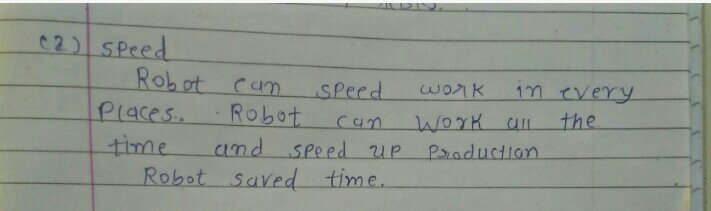 (2) speed
Robot can speed work in every
Places. Robot can work all the
time and speed up Production
Robot saved time.